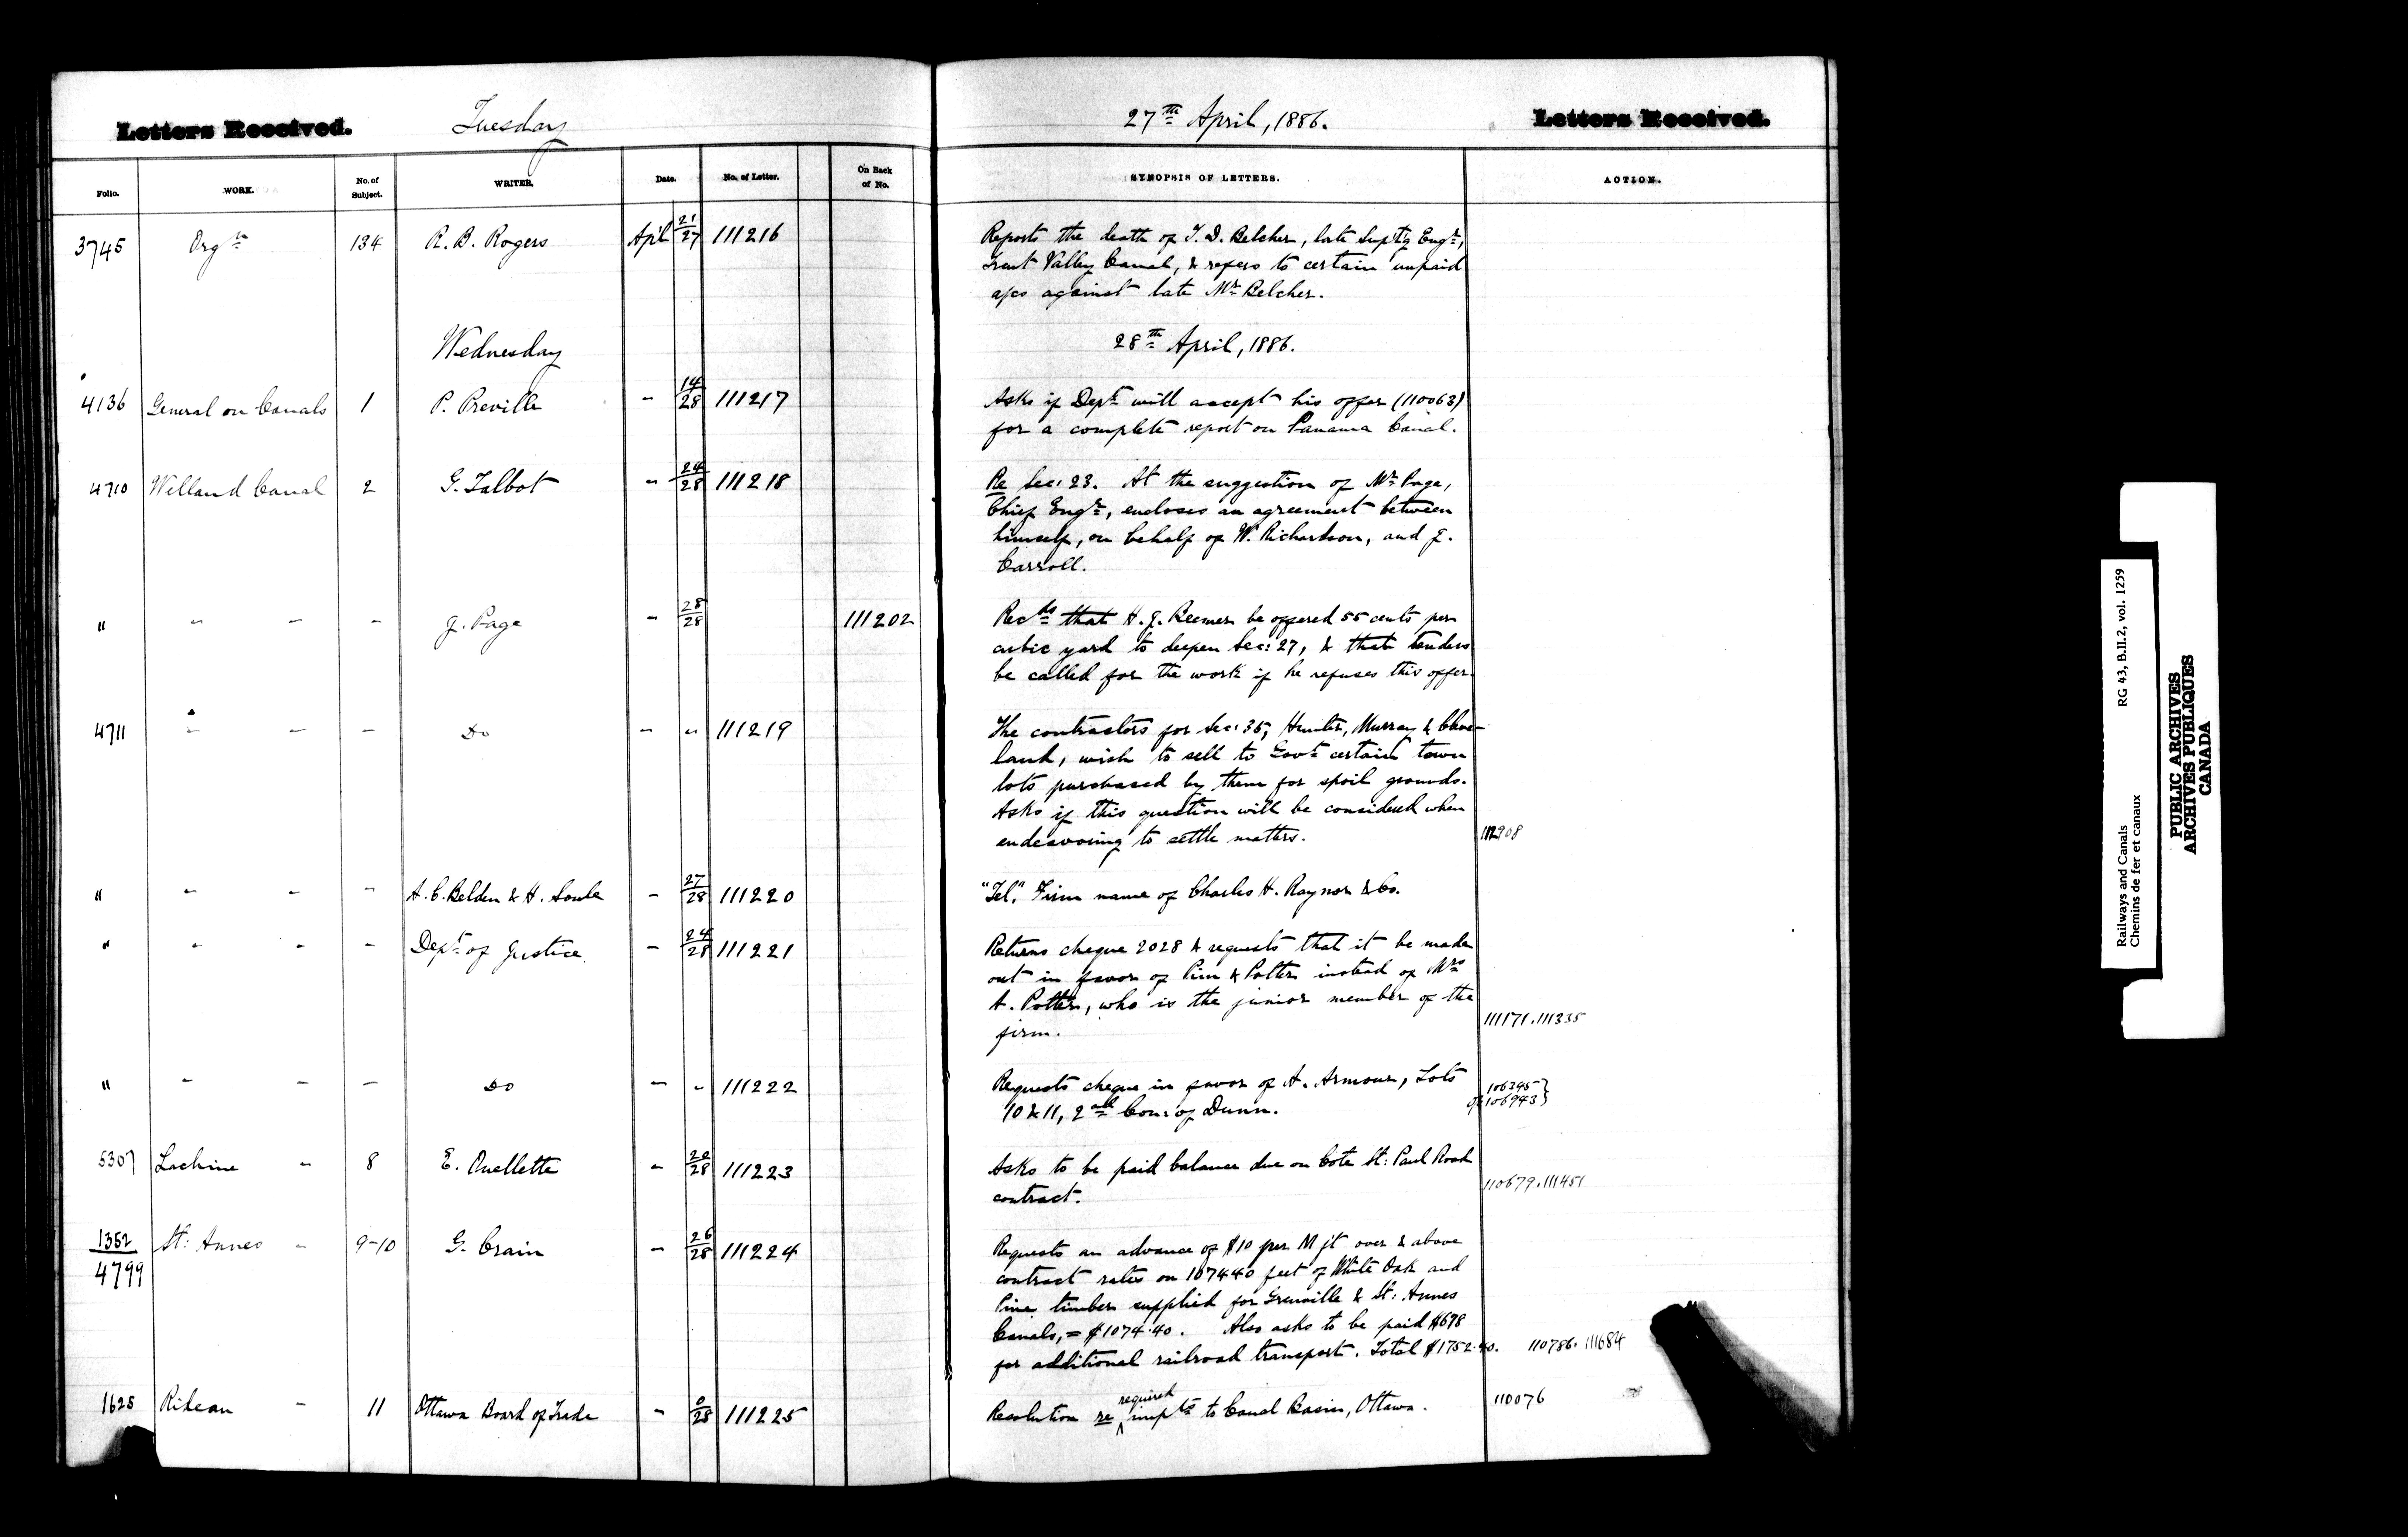 Letters Received. Tuesday 27th April, 1886. Letters Received.
Folio. WORK. No. of Subject. WRITER. Date. No. of Letter. On Back of No. SYNOPSIS OF LETTERS. ACTION.
3745 Orgn 134 R. B. Rogers Apl 21/27 111216 Reports the death of T. D. Belcher, late Suptg Engr,
Trent Valley Canal, & refers to certain unpaid
a/cs against late Mr Belcher.
Wednesday 28th April, 1886.
4136 General on Canals 1 P. Preville - 14/28 111217 Asks if Dept will accept his offer (110063)
for a complete report on Panama Canal.
4710 Welland Canal 2 G. Talbot - 24/28 111218 Re Sec: 23. At the suggestion of Mr Page,
Chief Engr, encloses an agreement between
himself, on behalf of W. Richardson, and J.
Carroll.
" - - - J. Page - 28/28 111202 Recds that H. J. Beemer be offered 55 cents per
cubic yard to deepen Sec: 27, & that tenders
be called for the work if he refuses this offer.
4711 - - - Do - " 111219 The contractors for Sec: 35, Hunter, Murray & Cleve-
land, wish to sell to Govt certain town
lots purchased by them for spoil grounds.
Asks if this question will be considered when
endeavoring to settle matters. 112908
" - - - A. C. Belden & H. Soule - 27/28 111220 "Tel." Firm name of Charles H. Raynor & Co.
" - - - Dept of Justice - 24/28 111221 Returns cheque 2028 & requests that it be made
out in favor of Pim & Potter instead of Mrs
A. Potter, who is the junior member of the
firm. 111171.111335
" - - - Do - " 111222 Requests cheque in favor of A. Armour, Lots 106395
10 & 11, 2nd Con: of Dunn. 106943
5307 Lachine - 8 E. Ouellette - 20/28 111223 Asks to be paid balance due on Cote St: Paul Road
contract. 110679.111451
1352/4799 St: Annes - 9-10 G. Crain - 26/28 111224 Requests an advance of $10 per M ft over & above
contract rates on 107440 feet of White Oak and
Pine timber supplied for Grenville & St: Annes
Canals, = $1074.40. Also asks to be paid $678
for additional railroad transport. Total $1752.40. 110786. 111684
1625 Rideau - 11 Ottawa Board of Trade - 0/28 111225 Resolution re required impts to Canal Basin, Ottawa. 110076
Railways and Canals RG 43, B.II.2, vol. 1259
Chemins de fer et canaux
PUBLIC ARCHIVES
ARCHIVES PUBLIQUES
CANADA